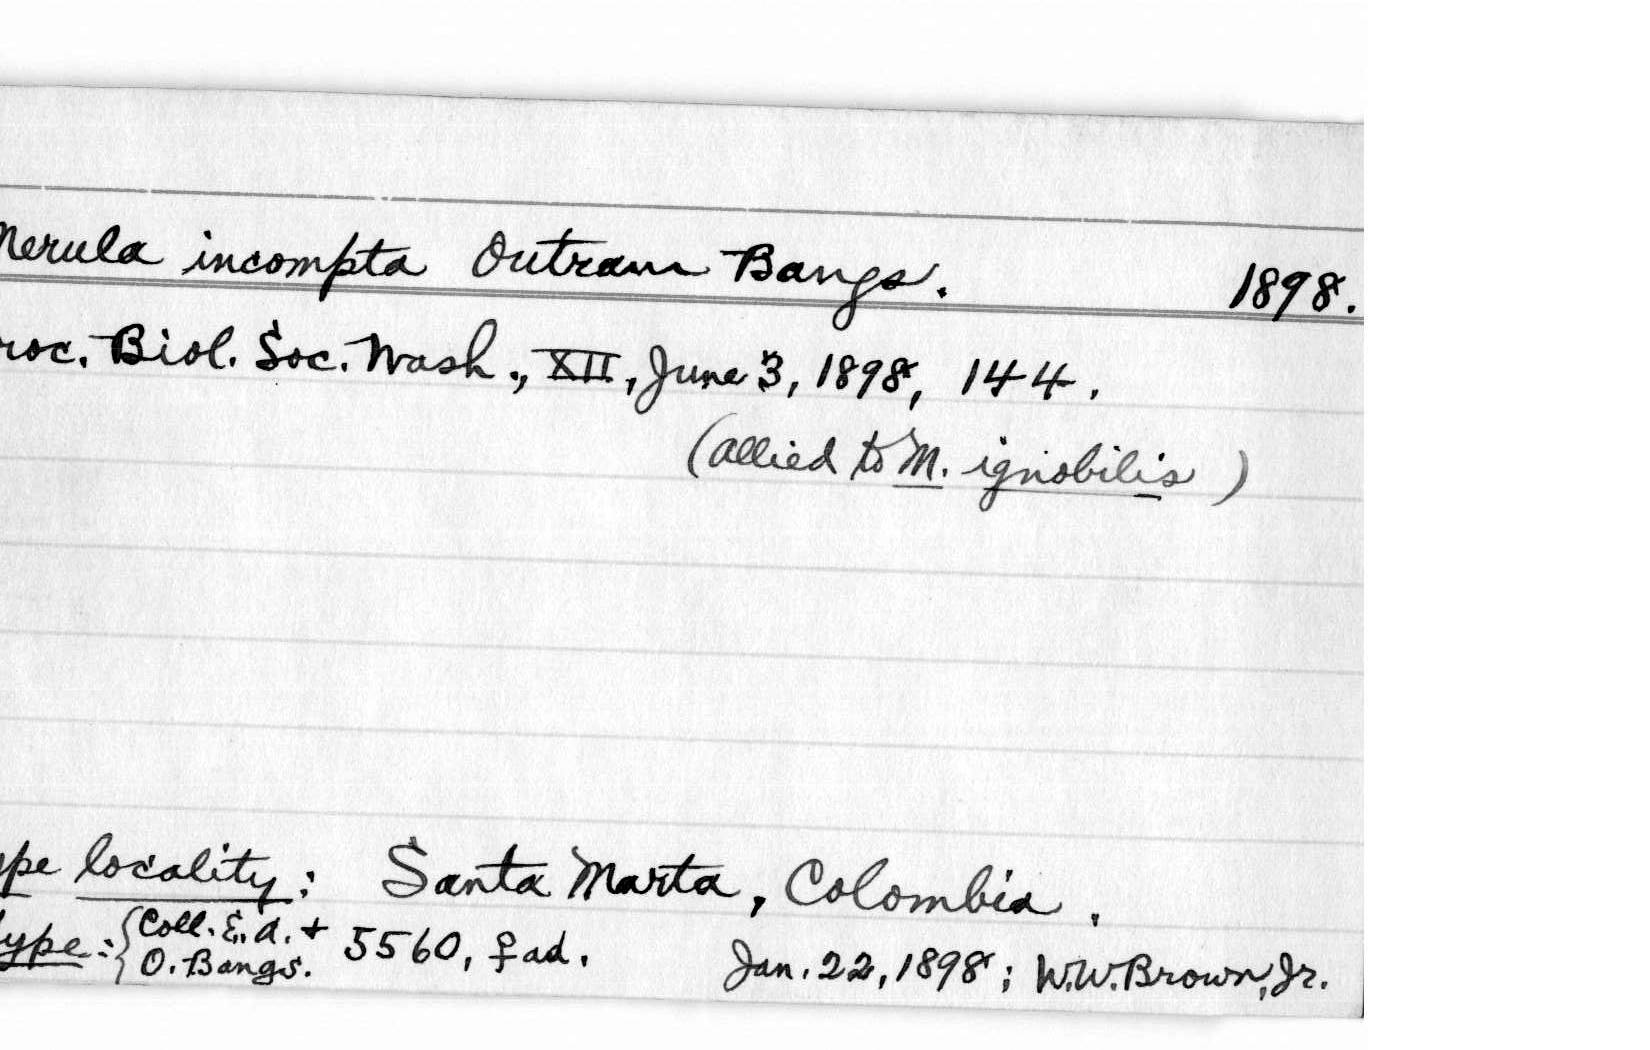 Merula incompta Outram Bangs. 1898.
roc. Biol. Soc. Wash., XII, June 3, 1898, 144.
(allied to M. ignobilis)
ype locality: Santa Marta, Colombia.
Type: {Coll. E. A. +
O. Bangs. 5560, ♀ ad. Jan. 22, 1898; W.W. Brown, Jr.